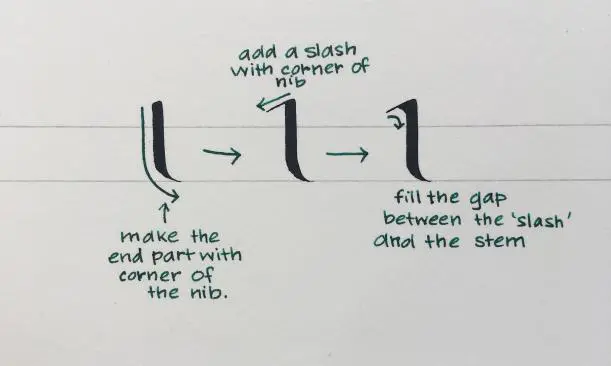 add a slash
with corner of
nib
make the
end part with
corner of
the nib.
fill the gap
between the 'slash'
and the stem